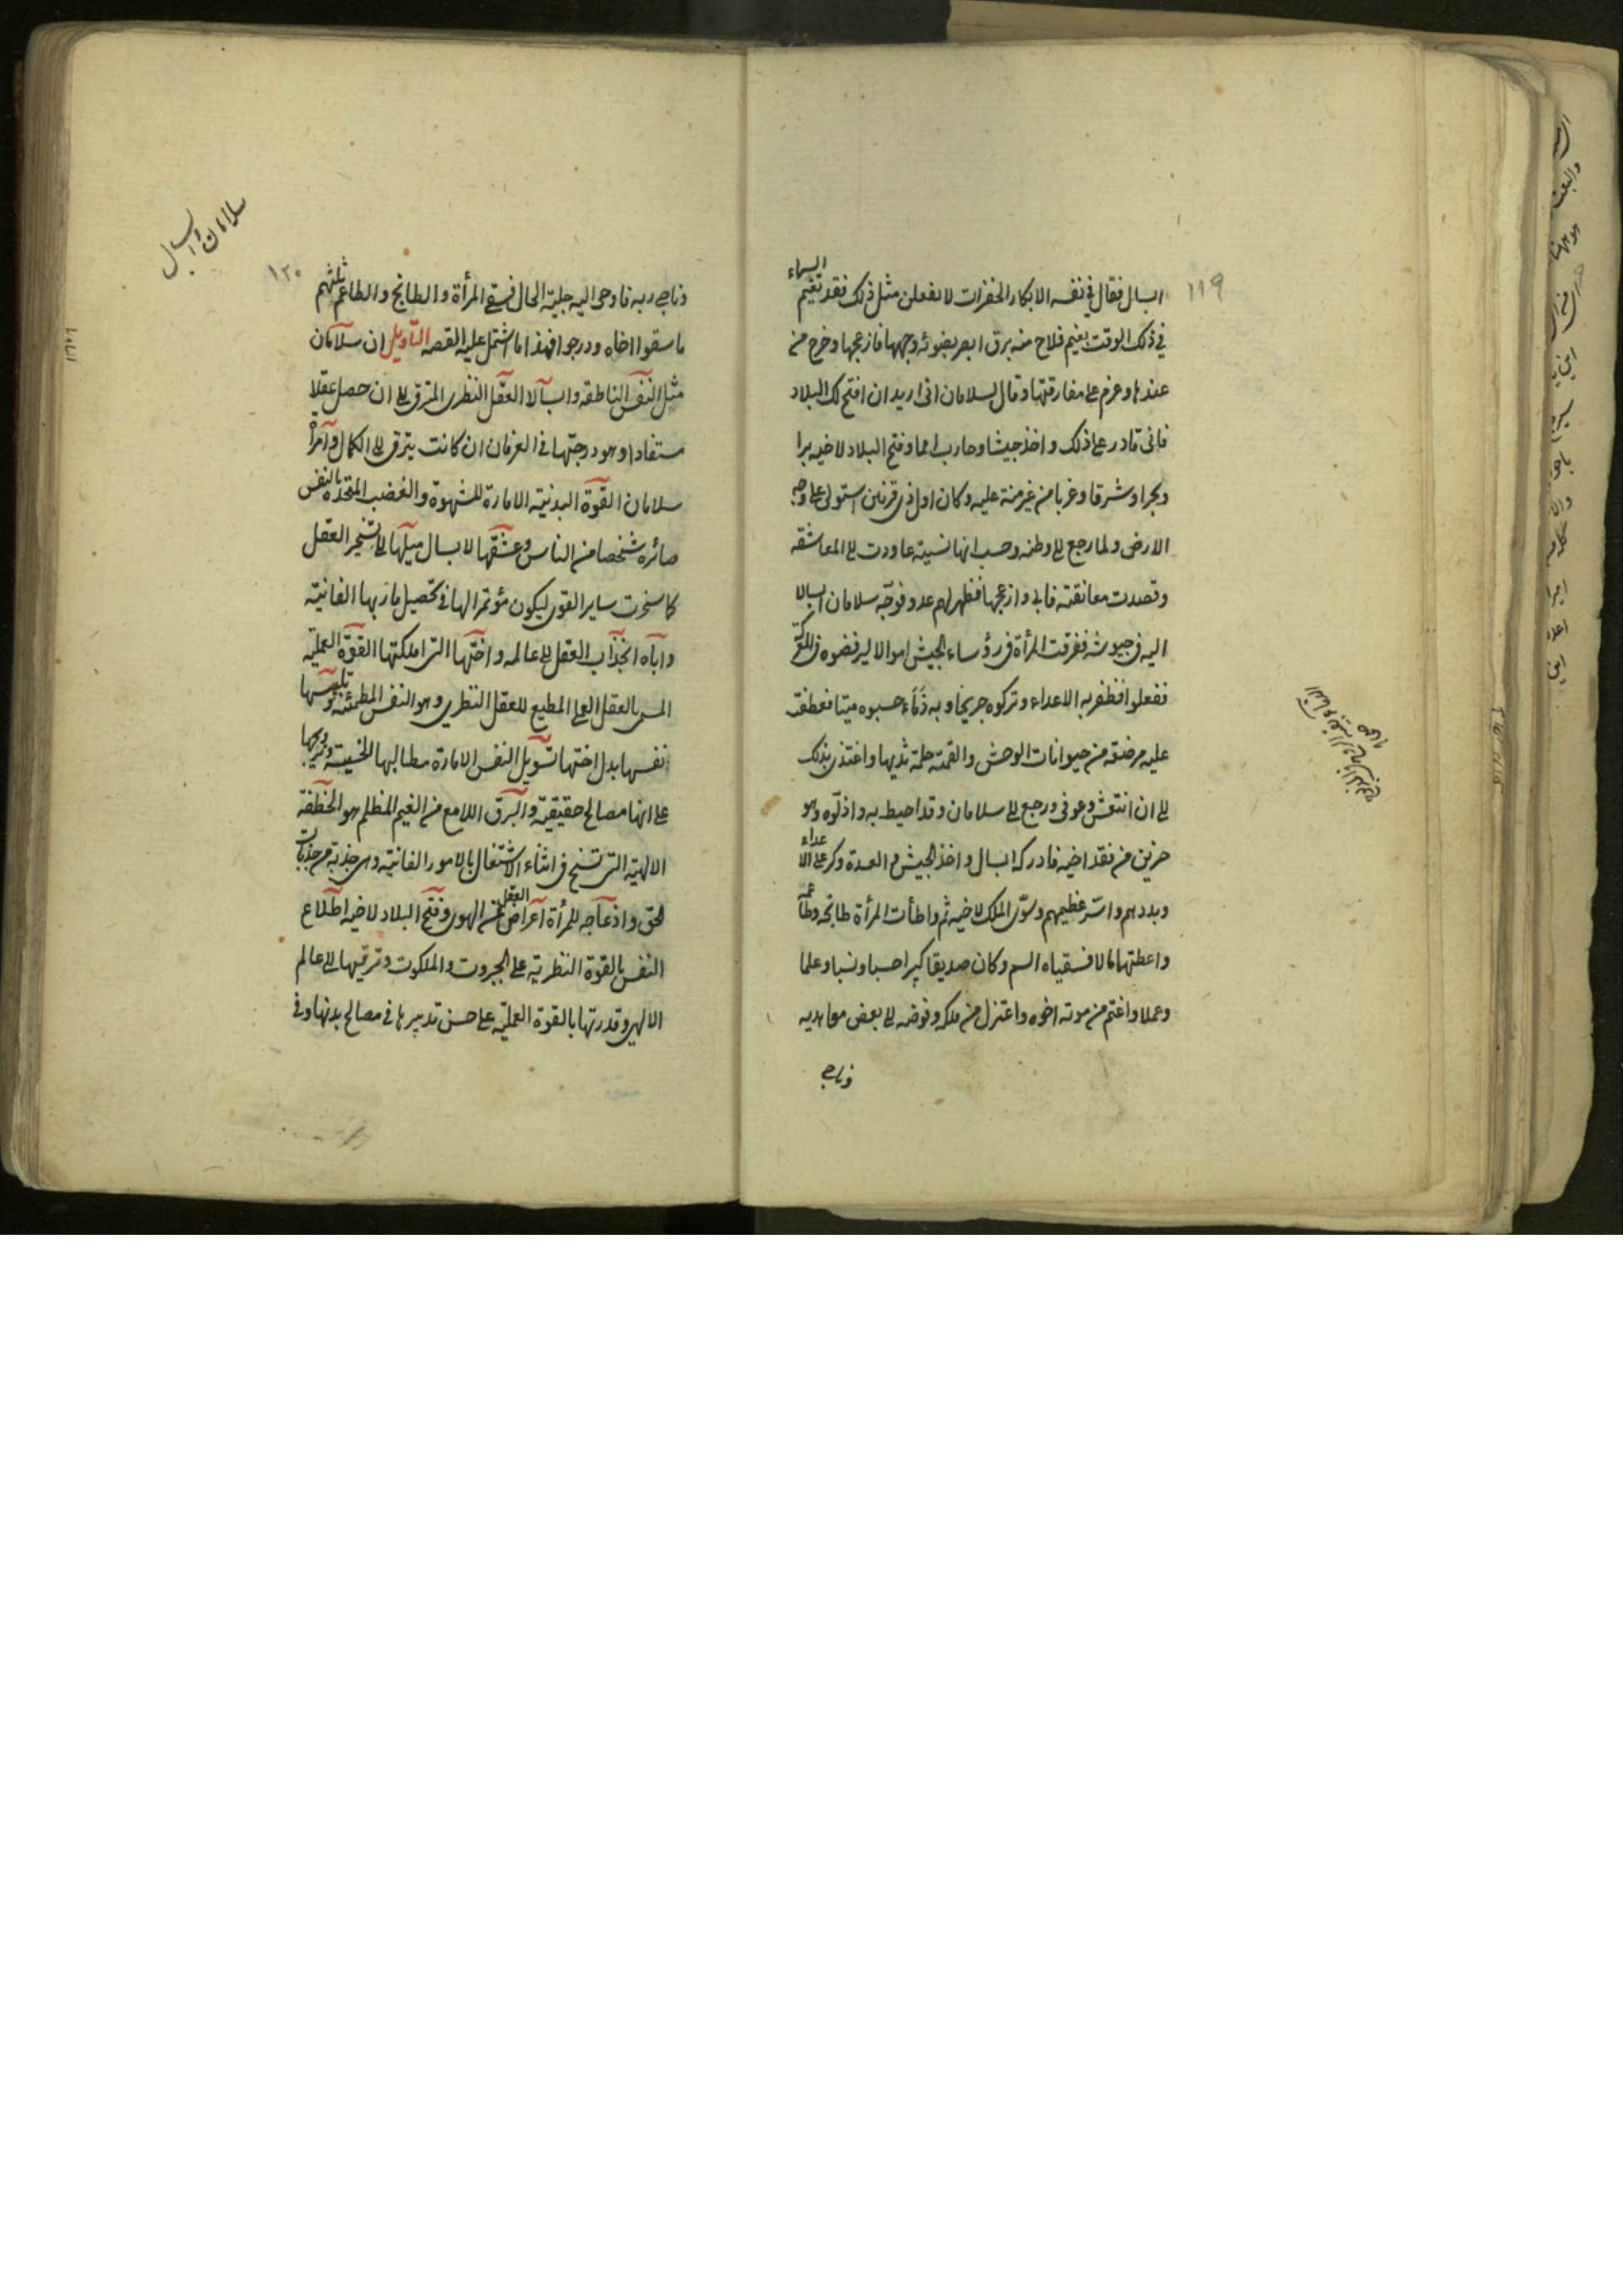 ١١٩
ابسال فقال في نفسه الابكار الخفرات لا يفعلن مثل ذلك فقد تغيم السماء
في ذلك الوقت بغيم فلاح منه برق ابصر بضوئه وجهها فازعجها وخرج من
عندها وعزم على مفارقتها وقال لسلامان انى اريد ان افتح لك البلاد
فانى قادر على ذلك واخذ جيشا وحارب امما وفتح البلاد لاخيه برا
وبحرا وشرقا وغربا من غير منة عليه وكان اول ذى قرنين استولى على وجه
الارض ولما رجع الى وطنه وحسب انها نسيته عاودت الى المعاشقه
وقصدت معانقته فابى وازعجها فظهر لهم عدو فوجّه سلامان ابسالا
اليه فى جيوشه ففرقت المرأة فى رؤساء الجيش اموالا ليرفضوه فى المعركة
ففعلوا فظفر به الاعداء وتركوه جريحا وبه دماء حسبوه ميتا فعطفت
عليه مرضعة من حيوانات الوحش والقمته حلمة ثديها واغتذى بذلك
الى ان انتعش وعوفى ورجع الى سلامان وقد احيط به واذلّوه وهو
حزين من فقد اخيه فادركه ابسال واخذ الجيش والعدة وكر على الاعداء
وبددهم واسر عظيمهم وسوّى الملك لاخيه ثم واطأت المرأة طابخه وطاعمه
واعطتهما مالا فسقياه السم وكان صديقا كبيرا حسبا ونسبا وعلما
وعملا واغتم من موته اخوه واعتزل من ملكه وفوضه الى بعض معاهديه
وناجى
سلامان وابسال
١٢٠
وناجى ربه فاوحى اليه جلية الحال فسقى المرأة والطابخ والطاعم ثلثهم
ما سقوا اخاه ودرجوا فهذا ما اشتمل عليه القصه التأويل ان سلامان
مثل النفس الناطقه وابسالا العقل النظرى المترقى الى ان حصل عقلا
مستفادا وهو درجتها فى العرفان ان كانت يترقى الى الكمال وامرأة
سلامان القوة البدنية الامارة للشهوة والغضب المتحدة بالنفس
صائرة شخصا من الناس وعشقها لابسال ميلها الى تسخير العقل
كما سخرت ساير القوى ليكون مؤتمرا لها فى تحصيل مآربها الفانية
واباه انجذاب العقل الى عالمه واختها التى املكتها القوة العملية
المسمى بالعقل العملى المطيع للعقل النظرى وهو النفس المطمئنه وتلبيسها
نفسها بدل اختها تسويل النفس الامارة مطالبها الخسيسة وترويجها
على انها مصالح حقيقية والبرق اللامع من الغيم المظلم هو الخطفة
الالهية التى تسنح فى اثناء الاشتغال بالامور الفانية وهى جذبة من جذبات
الحق واذعاجه للمرأة اعراض العقل عن الهوى وفتح البلاد لاخيه اطلاع
النفس بالقوة النظرية على الجبروت والملكوت وترقيها الى عالم
الالهى وقدرتها بالقوة العملية على حسن تدبيرها فى مصالح بدنها وفى